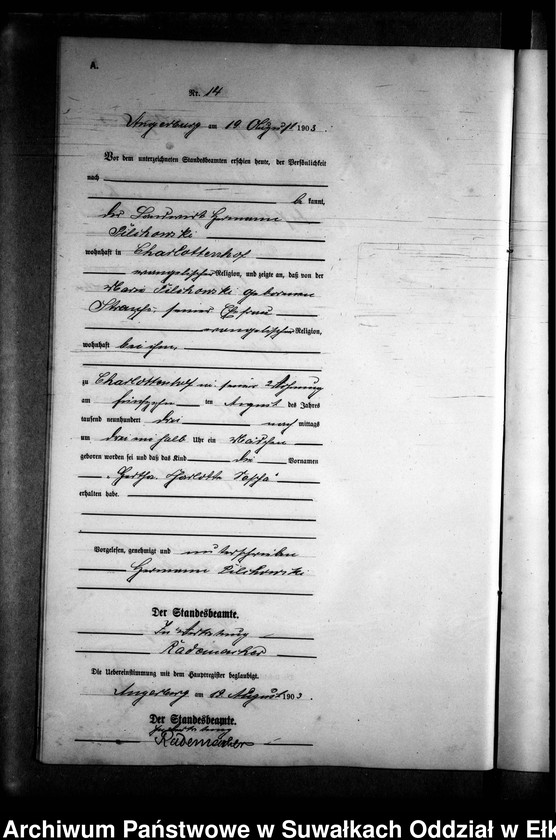 A.
Nr. 14
Angerburg am 19 August 1903.
Vor dem unterzeichneten Standesbeamten erschien heute, der Persönlichkeit
nach
be kannt,
der Landwirt Hermann
wohnhaft in Charlottenhof
evangelischer Religion, und zeigte an, daß von der
Maria geborenen
seiner Ehefrau
evangelischer Religion,
wohnhaft bei ihm,
zu Charlottenhof in seiner Wohnung
am fünfzehn ten August des Jahres
tausend neunhundert drei nach mittags
um drei ein halb Uhr ein Mädchen
geboren worden sei und daß das Kind die Vornamen
"Hertha Charlotte
erhalten habe.
Vorgelesen, genehmigt und unterschrieben
Hermann
Der Standesbeamte.
In Vertretung
Rademacher
Die Uebereinstimmung mit dem Hauptregister beglaubigt.
Angerburg am 19 August 1903.
Der Standesbeamte.
In Vertretung
Rademacher
Archiwum Państwowe w Suwałkach Oddział w Ełk